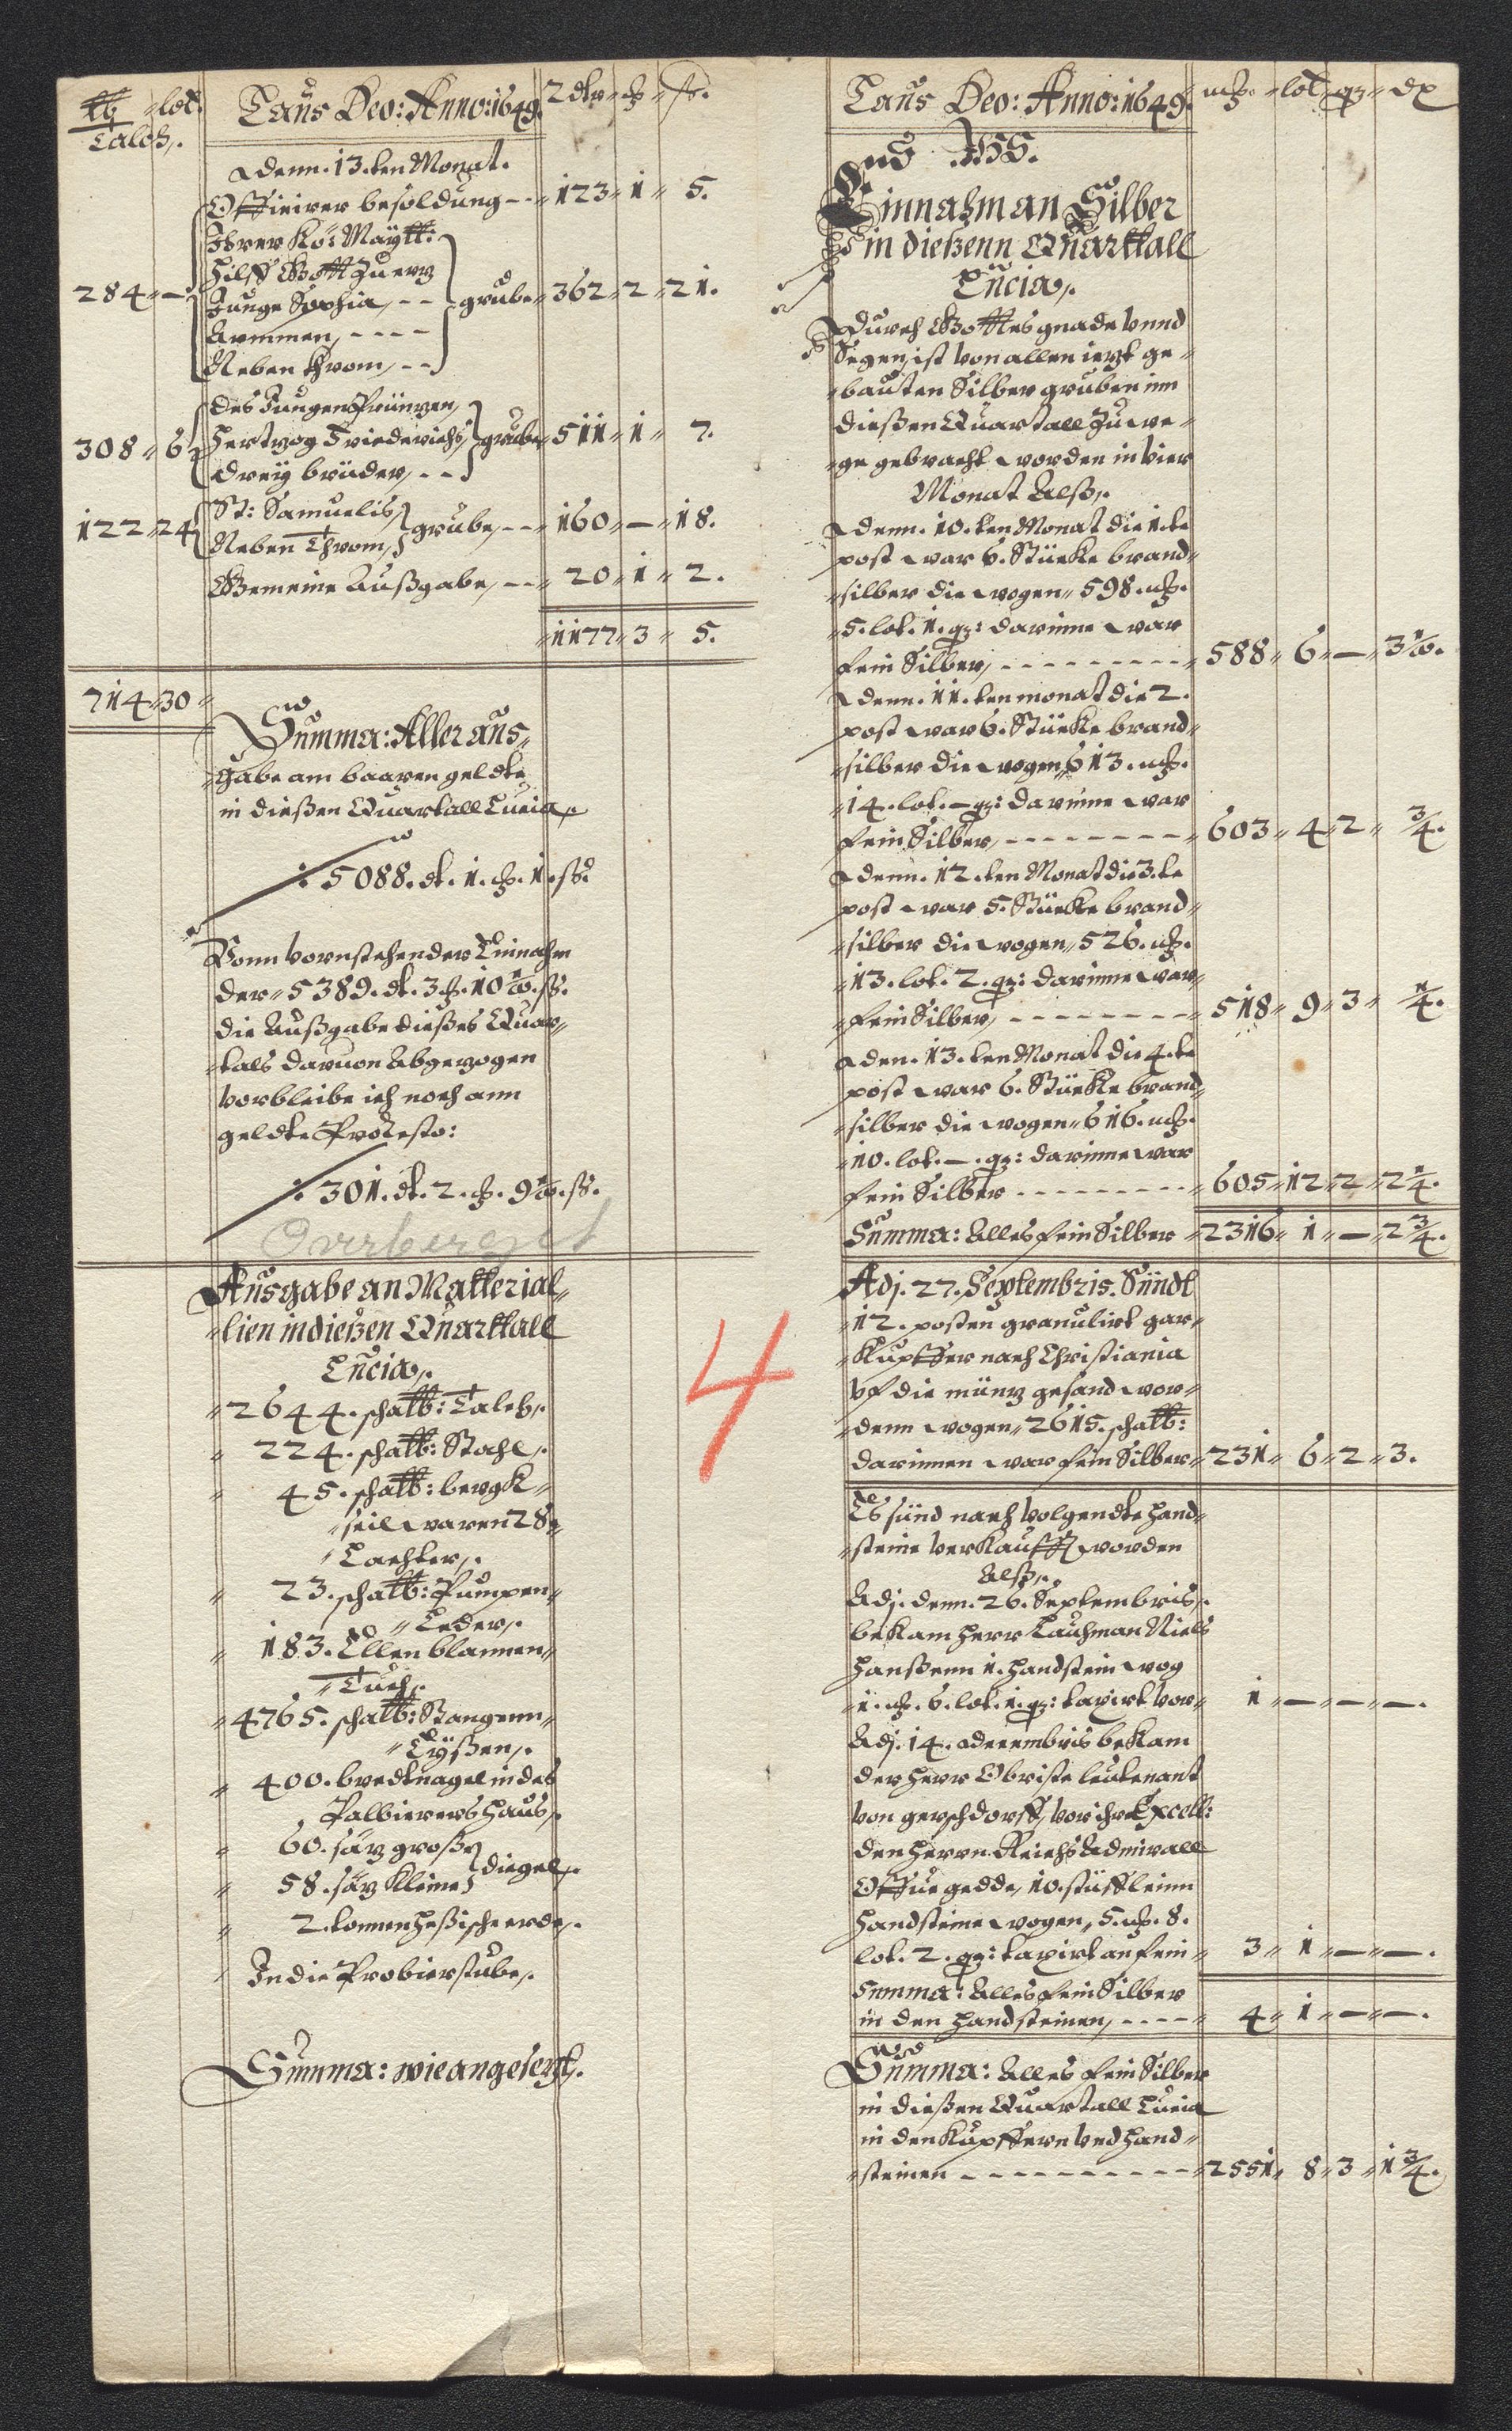 ℔ lot.
Talch.
Laus Deo: Anno: 1649.
2 dlr ß
Adenn. 13. ten Monat.
Officirer besoldung -- 123 1 5.
Ihrer Kö: Maÿtt:
Hilff Gott Zu ertz
284 — Junge Sophia, -- grube 362 2 21.
Arommen, ----
Neben throm, --
des Jungen Printzen,
308 6 Hertzog Friederichs, grube 511 1 7.
dreÿ brüder, --
St: Samuelis,
122 24 grube, -- 160 — 18.
Neben Throm,
Gemeine Außgabe, -- 20 1 2.
1177 3 5.
714 30
Summa: Aller aus
gabe am baaren geldte
in dießen Quartall Lucia,
5088. dt. 1. 1. ß.
Vonn vornstehender Einnahm
der 5389. dt. 3 10 1/10. ß.
die Außgabe dießes Quar
tals daruon Abgezogen
vorbleibe ich noch ann
geldte Protesto:
301. dt. 2. 9 1/10. ß.
Overberget
Ausgabe an Matterial
lien in dießen Quarttall
Lucia.
2644. scha℔: Talch.
224. scha℔: Stahl.
45. scha℔: bergk
seil waren 28
Lachter.
23. scha℔: Pumpen
Leder.
183. Ellen blannen
Tuch.
4765. scha℔: Stangenn
Eÿßen.
400. bredtnagel in des
Palbierers Haus.
60. satz große
diegel.
58. satz kleine
2. tonnen heßische erde.
In die Probierstube.
Summa: wie angesetzt.
Laus Deo: Anno: 1649.
lot
Einnahm an Silber
in dießenn Quarttall
Lucia.
Durch Gottes gnade vnnd
Segen, ist von allen ietzt ge
bauten Silber gruben inn
dießen Quartall Zu we
ge gebracht worden in vier
Monat Alß.
Adenn. 10. ten Monat die 1. te
post war 6. Stücke brand
silber die wogen 598.
5. lot. 1. darinne war
fein Silber, --------- 588 6 — 3 1/10.
Adenn. 11. ten monat die 2.
post war 6. Stücke brand
silber die wogen 613.
14. lot. — darinne war
fein Silber, -------- 603 4 2 3/4.
Adenn. 12. ten Monat die 3. te
post war 5. Stücke brand
silber die wogen 526.
13. lot. 2. darinne war
fein Silber, -------- 518 9 3 1/4.
Aden. 13. ten Monat die 4. te
post war 6. Stücke brand
silber die wogen 616.
10. lot. — darinne war
fein Silber --------- 605 12 2 2 1/4.
Summa: Alles fein Silber 2316 1 — 2 3/4.
Adj. 27. Septembris. Sündt
12. posten granulirt gar
Kupffer nach Christiania
vf die müntz gesand wor
denn wogen 2615. scha℔:
darinnen war fein Silber 231 6 2 3.
Es sünd nach volgendte hand
steine verkaufft worden
Alß.
Adj. denn. 26. Septembris.
bekam herr Lauhman Niels
Hanßenn 1. handstein wog
1. 6. lot. 1. taxirt vor 1 — — —.
Adj. 14. decembris bekam
der herr Obriste leutenant
von gerschdorff, vor ihr Excell:
den herrn Reichs Admirall
Offue gedde, 10. stüfflein
handsteine wogen, 5. 8.
lot. 2. taxirt an fein 3 1 — —.
Summa: Alles fein Silber
in den handsteinen, ---- 4 1 — —.
Summa: Alles fein Silber
in dießen Quartall Lucia
in den Kupffern vnd hand
steinen ---------- 2551 8 3 1 3/4.
4